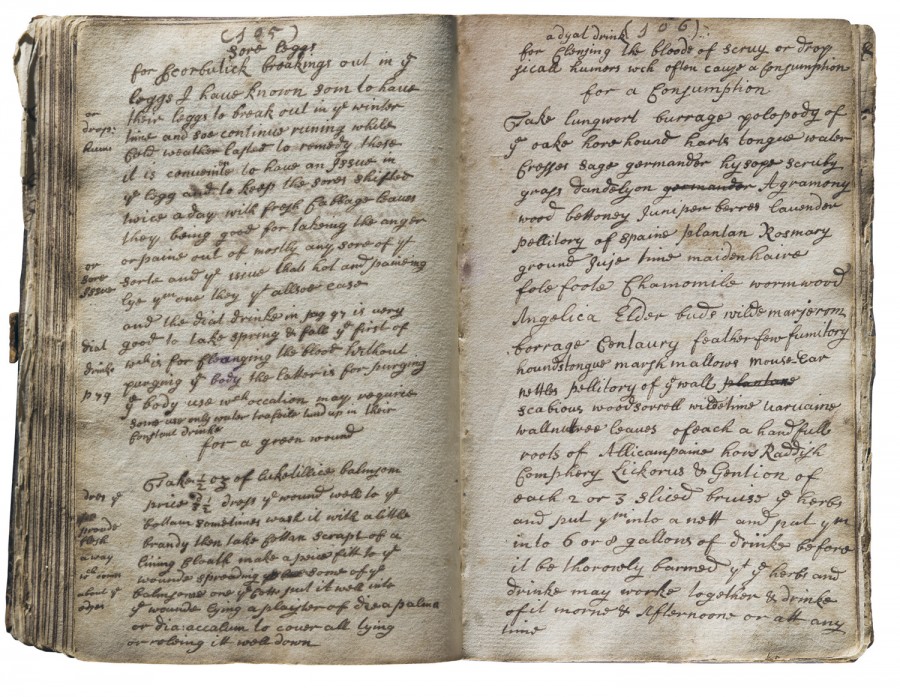 (105)
Sore Leggs
for Scorbutick breakings out in ye
Leggs I have known som to have
their Leggs to break out in ye winter
time and soe continue runing while
Cold weather lasted to remedy these
it is convenient to have an Issue in
ye Legg and to keep the sores shifted
twice a day with fresh Cabbage leaves
they being good for takeing the anger
or paine out of mostly any sore of yt
sorte and ye issue thats hot and paineing
Lye ym one they yt allsoe case
and the diat drinke in pag 97 is very
good to take spring & fall ye first of
wch is for cleanging the blood without
purging ye body the latter is for purging
ye body use wch occation may require
some use only water trefoile tund up in their
Constant drinke
or
drop:
hums
or
sore
Issue
diat
drinke
P 79
for a green wound
Take ½ oz of Liketillice balmsom
price drop ye wound well to ye
bottum sometimes wash it with a little
brandy then take Cotten scrapt of a
lining Cloath make a peice fitt to ye
wounde spreading some of ye
balmsome one ye put it well into
ye wounde lying a plaister of diea palma
or dia:accalum to cover all tying
or roleing it well down
dres ye
wounde
fresh
away
about ye
edges
(106)
a dyat drink
for Clensing the bloode of scruy or drop
sicall humers wch often cause a Consumption
for a Consumption
Take lungwort burrage polopody of
ye oake horehound harts tongue water
Cresses sage germander hysope scruby
grass dandelyon germander Agramony
wood bettoney Juniper berres lavender
pellitory of spaine plantan Rosmary
ground Juje time maidenhaire
fole foote Chamomile wormwood
Angelica Elder buds wilde marjerom
borrage Centaury featherfew fumitory
houndstongue marsh mallows mouse ear
nettles pellitory of ye wall plantane
scabious woodsorrell wilde time varvaine
wallnuttree leaves of each a handfull
roots of Allicampaine hors Raddish
Comphery Lickorus & Gention of
each 2 or 3 sliced bruise ye herbs
and put ym into a nett and put ym
into 6 or 8 gallons of drinke before
it be thorowly barmed yt ye herbs and
drinke may worke together & drinke
of it morne & Afternoone or att any
time